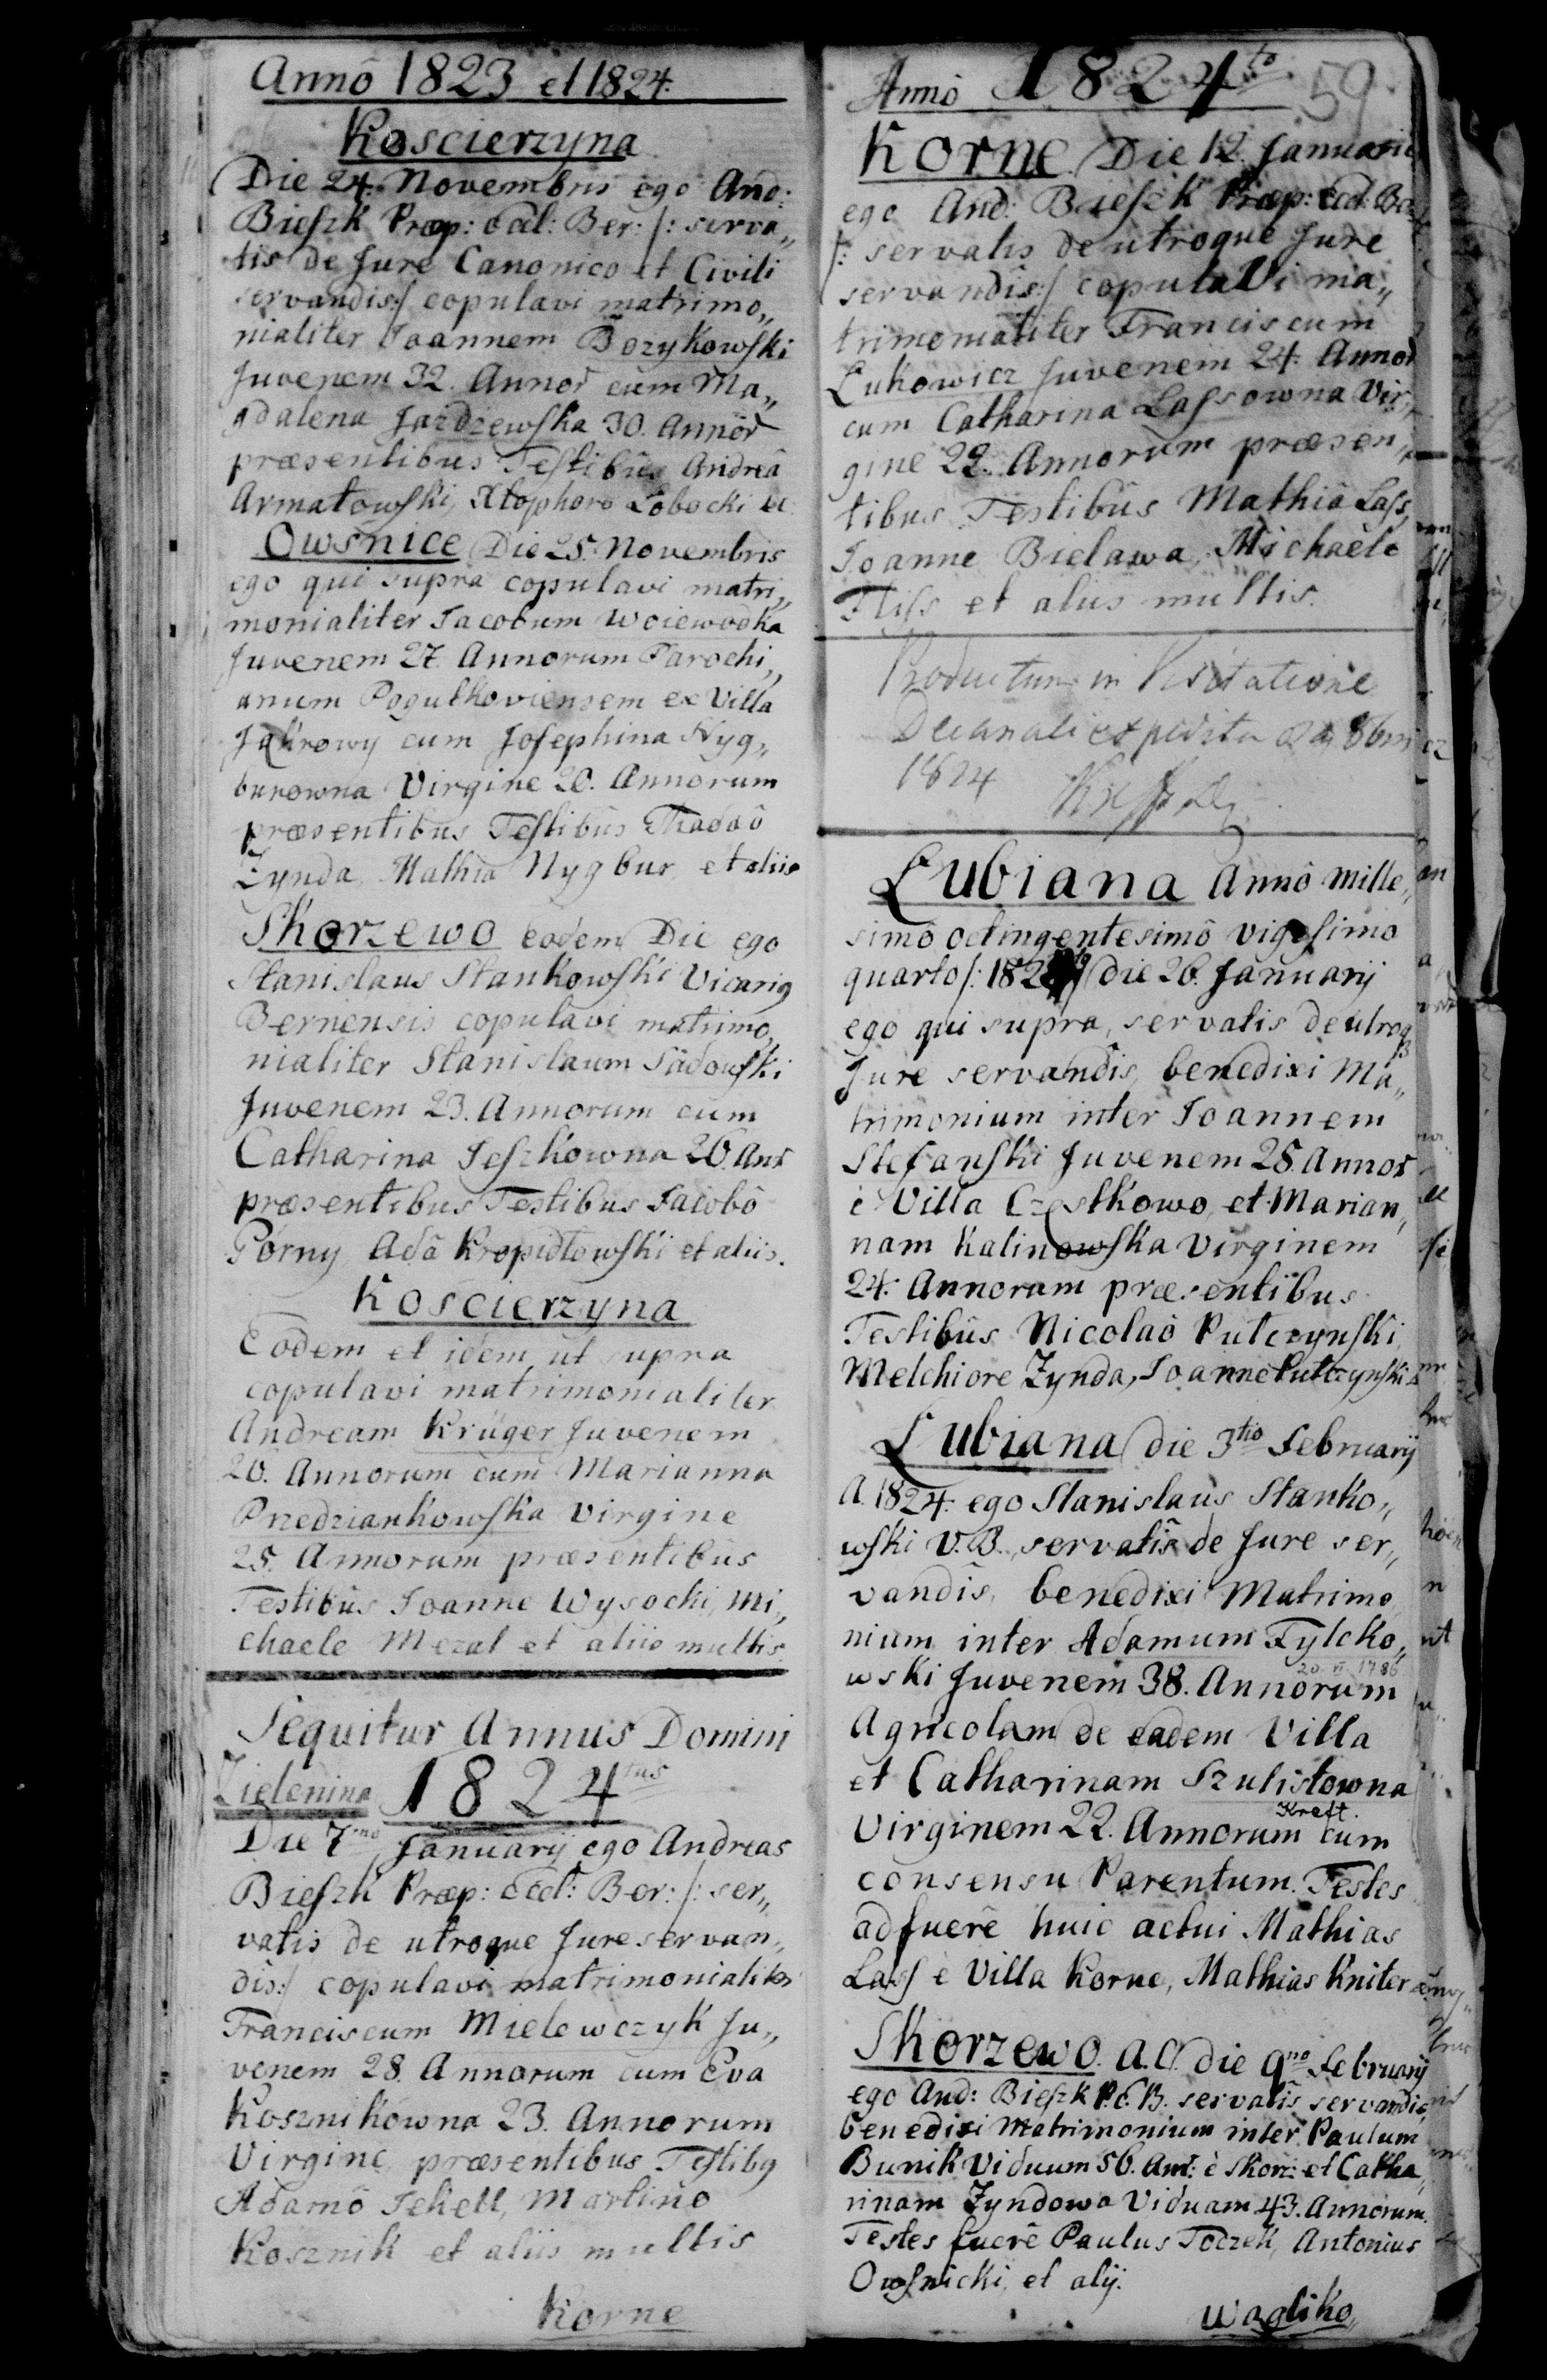 Annô 1823 et 1824.
Koscierzyna
Die 24. Novembris ego And:
Bieszk Præp: Eccl: Ber: /: serva„
tis de Jure Canonico et Civili
servandis:/ copulavi matrimo„
nialiter Joannem Bozykowski
Juvenem 32. Annor cum Ma„
gdalena Jazdzewska 30. Annor
præsentibus Testibus Andreâ
Armatowski, Xtophoro Lobocki et
Owsnice Die 25. Novembris
ego qui supra copulavi matri„
monialiter Jacobum Woiewodka
Juvenem 27. Annorum Parochi„
anum Pogutkoviensem ex Villa
Jakrowy cum Josephina Nyg„
burowna Virgine 20. Annorum
præsentibus Testibus Thadaô
Zynda, Mathia Nygbur, et aliis
Skorzewo eodem Die ego
Stanislaus Stankowski Vicarig
Bernensis copulavi matrimo„
nialiter Stanislaum Sadowski
Juvenem 23. Annorum cum
Catharina Jeszkowna 26. Anr
præsentibus Testibus Jacobô
Górny Adâ Kropidłowski et aliis.
Koscierzyna
Eodem et idem ut supra
copulavi matrimonialiter
Andream Krüger Juvenem
20. Annorum cum Marianna
Przedziankowska Virgine
25. Annorum præsentibus
Testibûs Joanne Wysocki, Mi„
chaele Mezal et aliis multis.
Sequitur Annus Domini
Zielenina 1824tus
Die 7mo Januarij ego Andreas
Bieszk Præp: Eccl: Ber: /: ser„
vatis de utroque Jure servan„
dis:/ copulavi matrimonialiter
Franciscum Mielewczyk Ju„
venem 28. Annorum cum Eva
Kosznikowna 23. Annorum
Virgine præsentibus Testibg
Adamô Jekell, Martino
Kosznik et aliis multis
Korne
Annô 1824to 59
Korne Die 12. Januarii
ego And: Bieszk Præp: Eccl: Ber
/: servatis de utroque Jure
servandîs:/ copulaVi ma„
trimonialiter Franciscum
Łukowicz Juvenem 24. Annor
cum Catharina Lassowna Vir„
gine 22. Annorum præsen„
tibus Testibûs Mathiâ Lass,
Joanne Bielawa, Michaële
Fliss et aliis multis.
Productum in Visitatione
Decanali expedita
1824
Łubiana Annô mille„
simô octingentesimô vigesimo
quarto /: 1824 :/ die 26. Januarij
ego qui supra, servatis de utroq
Jure servandis, benedixi Ma„
trimonium inter Joannem
Stefanski Juvenem 28. Annor
è Villa Częstkowo, et Marian„
nam Kalinowska Virginem
24. Annorum præsentibus
Testibûs Nicolaô Putczynski,
Melchiore Zynda, Joanne Putczynski
Łubiana die 3tio Februarij
A. 1824. ego Stanislaus Stanko„
wski V. B., servatis de Jure ser„
vandis, benedixi Matrimo„
nium inter Adamum Zylcko„
wski Juvenem 38. Annorum
20. II. 1786
Agricolam de eadem Villa
et Catharinam Szulistowna
Kreft.
Virginem 22. Annorum cum
consensu Parentum. Testes
adfuerê huic actui Mathias
Lass è Villa Korne, Mathias Kniter
Skorzewo. A. C. die 9no Februarij
ego And: Bieszk P. E. B. servatis servandis
benedixi Matrimonium inter Paulum
Bunik Viduum 56. Anr: è Skorz: et Catha„
rinam Zyndowa Viduam 43. Annorum.
Testes fuerê Paulus Toczek, Antonius
Owsnicki, et alij.
Wagliko„